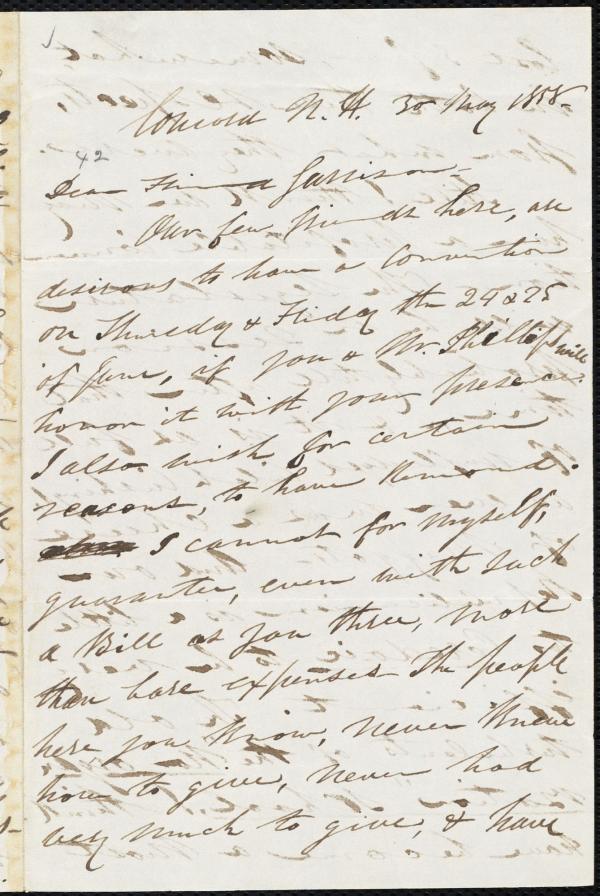 Concord N. H. 30 May 1858-
42
Dear Friend Garrison-
Our few friends here, are
desirous to have a Convention
on Thursday & Friday the 24 & 25
of June, if you & Mr. Phillips will
honor it with your presence.
I also wish for certain
reasons, to have Remond.
I cannot for myself,
guarantee, even with such
a Bill as you three, more
than bare expenses. The people
here you know, never knew
how to give, never had
very much to give, & have